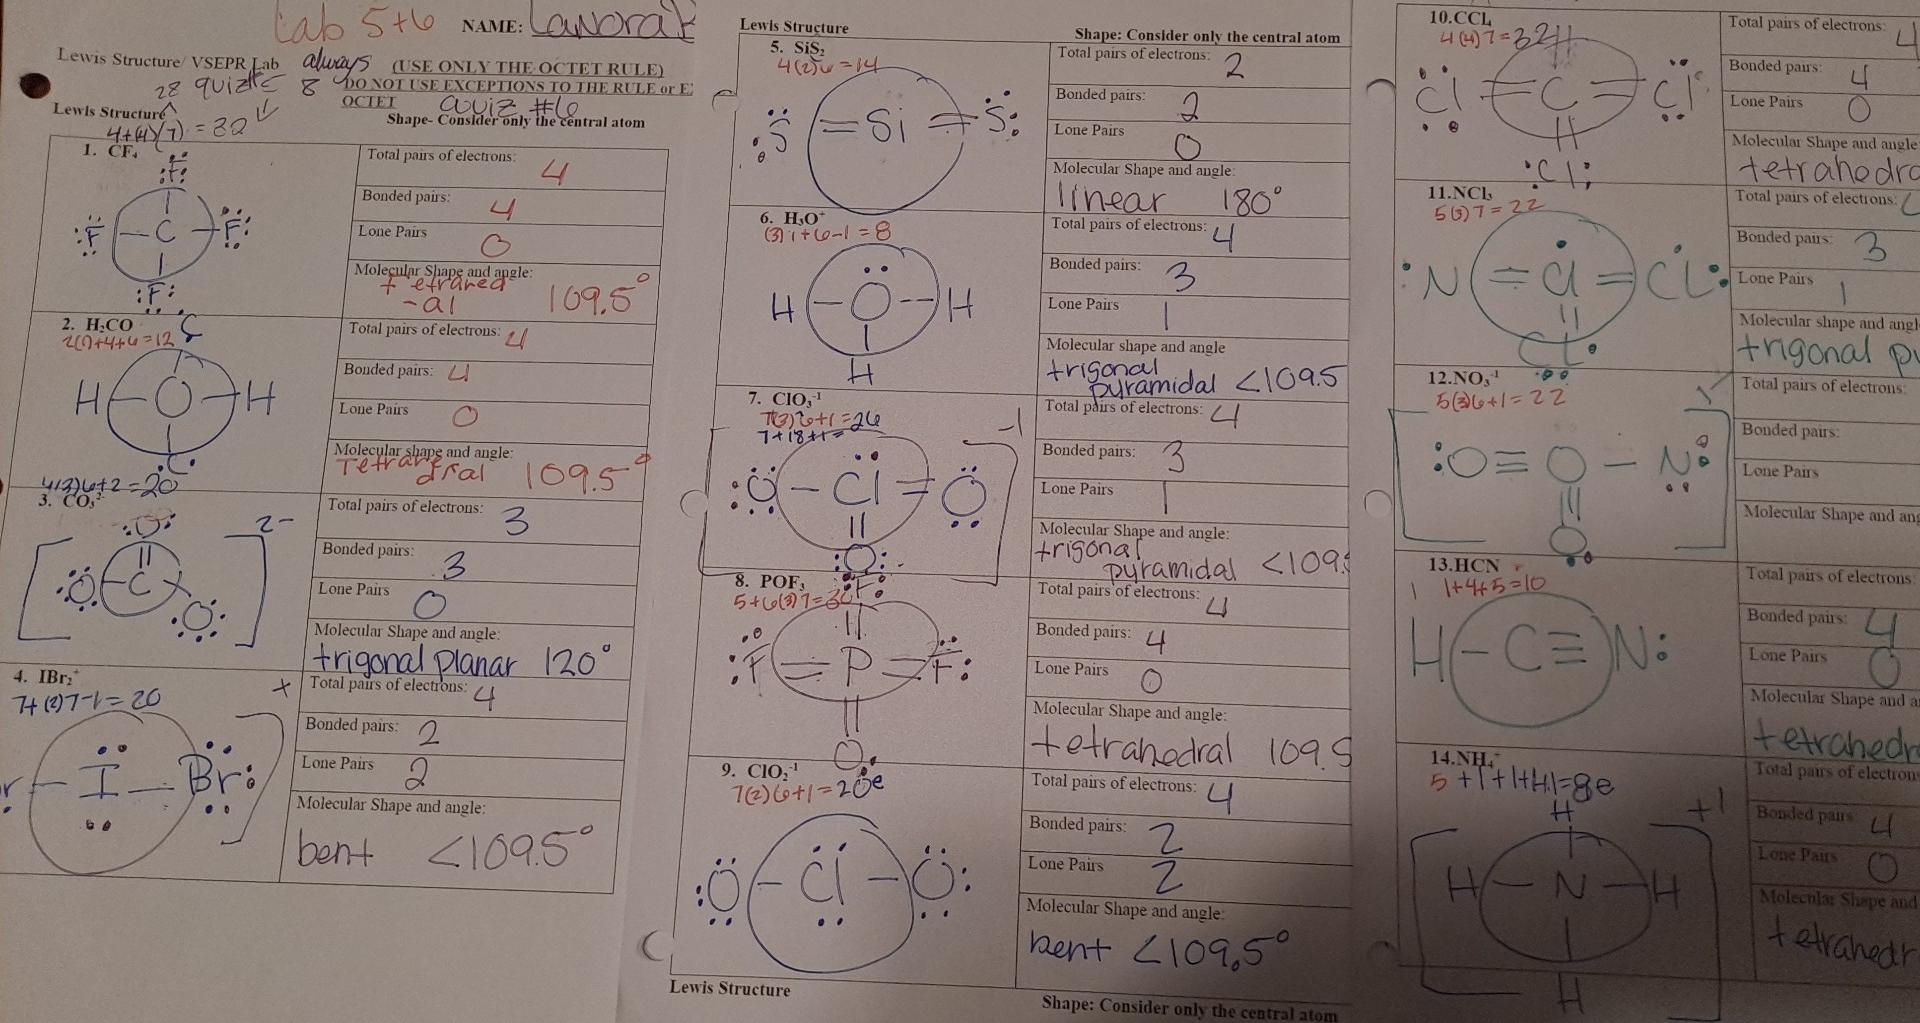 Lab 5+6 NAME: Landra
Lewis Structure/ VSEPR Lab always (USE ONLY THE OCTET RULE)
28 quizzE 8 DO NOT USE EXCEPTIONS TO THE RULE or E
OCTET Quiz #6
Lewis Structure
Shape- Consider only the central atom
4+(4)(7) = 32
1. CF₄
F
F - C - F
F
Total pairs of electrons: 4
Bonded pairs: 4
Lone Pairs 0
Molecular Shape and angle:
tetrahed
-al 109.5°
2. H₂CO
2(1)+4+6=12
C
H - O - H
C
Total pairs of electrons: 4
Bonded pairs: 4
Lone Pairs 0
Molecular shape and angle:
Tetrahe
dral 109.5°
4(3)6+2=20
3. CO₃²⁻
O 2-
O - C
O
Total pairs of electrons: 3
Bonded pairs: 3
Lone Pairs 0
Molecular Shape and angle:
trigonal planar 120°
4. IBr₂⁺
7+(2)7-1=20
+
r - I - Br
Total pairs of electrons: 4
Bonded pairs: 2
Lone Pairs 2
Molecular Shape and angle:
bent <109.5°
Lewis Structure
Shape: Consider only the central atom
5. SiS₂
4(2)6=14
S = Si = S
Total pairs of electrons: 2
Bonded pairs: 2
Lone Pairs 0
Molecular Shape and angle:
linear 180°
6. H₃O⁺
(3)1+6-1=8
H - O - H
H
Total pairs of electrons: 4
Bonded pairs: 3
Lone Pairs 1
Molecular shape and angle
trigonal
pyramidal <109.5
7. ClO₃⁻¹
7(3)6+1=26
7+18+1=
-1
O - Cl = O
O
Total pairs of electrons: 4
Bonded pairs: 3
Lone Pairs 1
Molecular Shape and angle:
trigonal
pyramidal <109.
8. POF₃
5+6(3)7=
F
F = P = F
O
Total pairs of electrons: 4
Bonded pairs: 4
Lone Pairs 0
Molecular Shape and angle:
tetrahedral 109.5
9. ClO₂⁻¹
7(2)6+1=20e
O - Cl - O
Total pairs of electrons: 4
Bonded pairs: 2
Lone Pairs 2
Molecular Shape and angle:
bent <109.5°
Lewis Structure
Shape: Consider only the central atom
10.CCl₄
4(4)7=32
Cl = C = Cl
Cl
Total pairs of electrons: 4
Bonded pairs: 4
Lone Pairs 0
Molecular Shape and angle
tetrahedra
11.NCl₃
5(3)7=22
N = Cl = Cl
Cl
Total pairs of electrons:
Bonded pairs: 3
Lone Pairs 1
Molecular shape and angl
trigonal py
12.NO₃⁻¹
5(3)6+1=22
O ≡ O - N
O
Total pairs of electrons:
Bonded pairs:
Lone Pairs
Molecular Shape and ang
13.HCN
1+4+5=10
H - C ≡ N
Total pairs of electrons:
Bonded pairs: 4
Lone Pairs 0
Molecular Shape and a
tetrahedr
14.NH₄⁺
5+1+1+1+1=8e
+1
H
H - N - H
H
Total pairs of electron
Bonded pairs 4
Lone Pairs 0
Molecular Shape and
tetrahedr